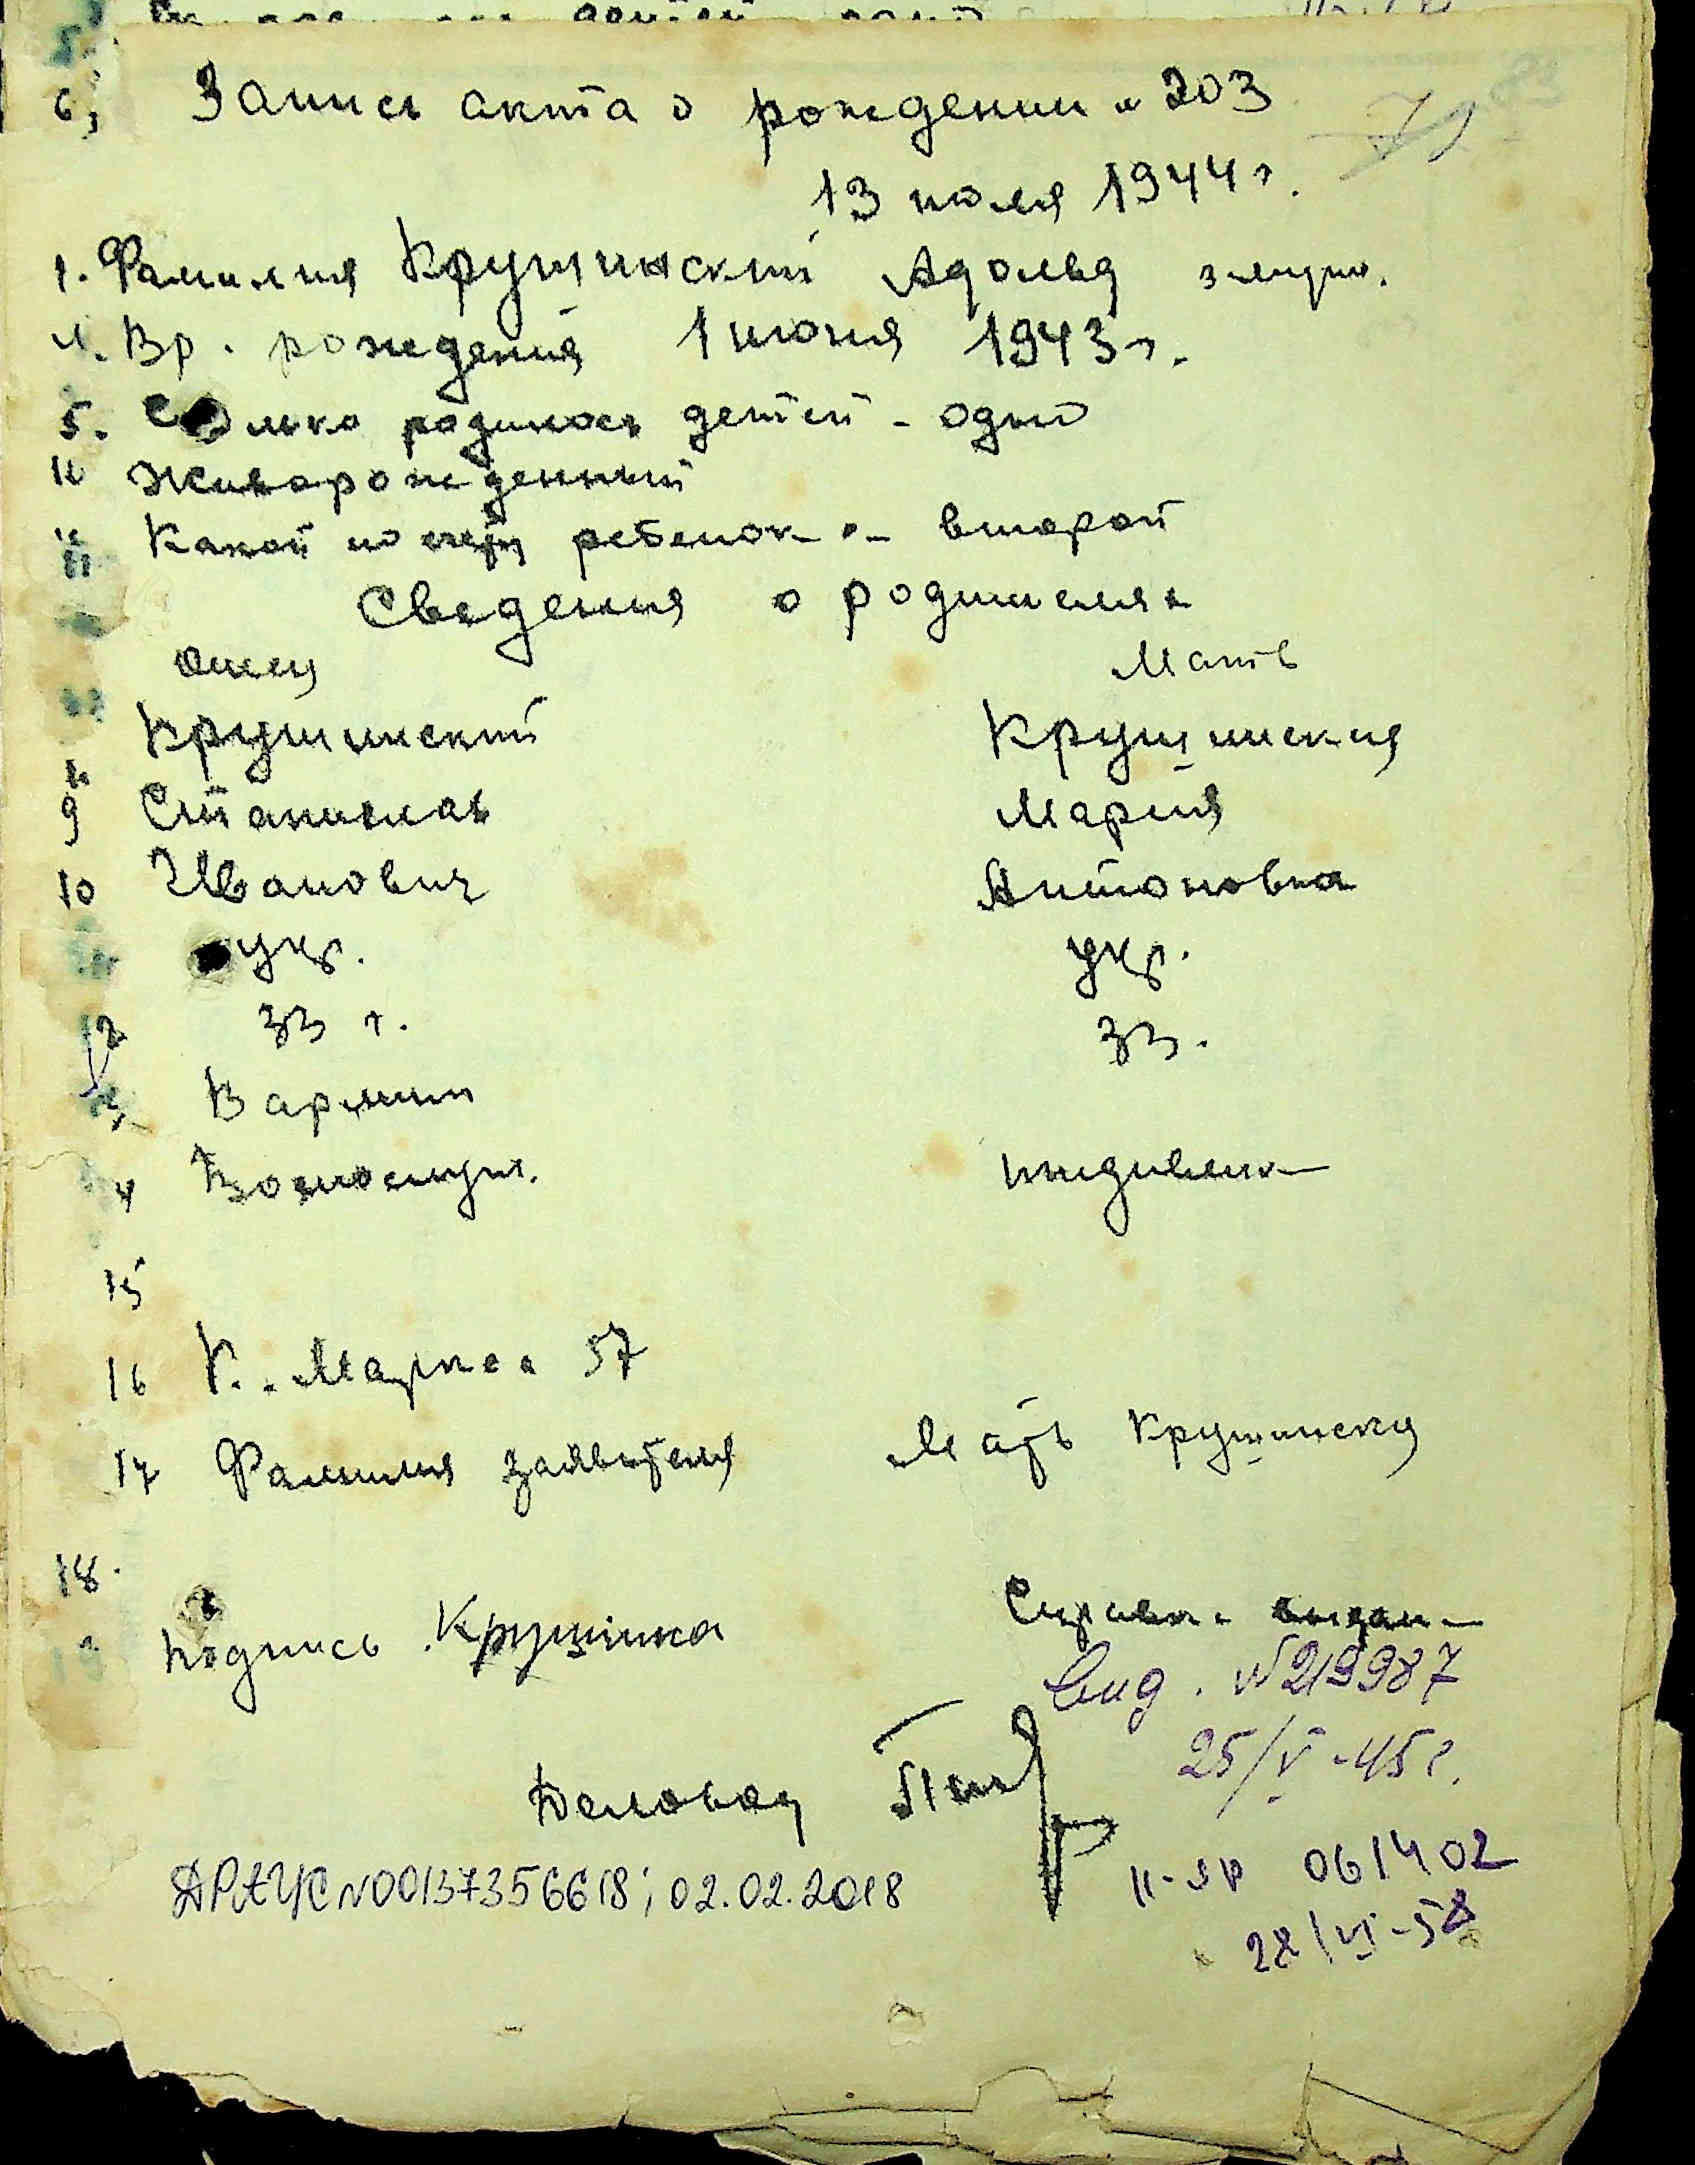 Запись акта о рождении № 203
79
13 июля 1944 г.
1. Фамилия Крушинский Адольв
4. Вр. рождения 1 июня 1943 г.
5. Сколько родилось детей - один
Живорожденный
Какой по счету ребенок - второй
Сведения о родителях
отец Мать
Крушинский Крушинская
9 Станислав Мария
10 Иванович Антоновна
укр. укр.
12 33 г. 33.
4 Военнослуж. иждивенк
15
16 К. Маркса 57
17 Фамилия заявителя Мать Крушинску
18.
подпись Крушинска Справка выдан
Делов
вид. N 219987
25/V-45 г.
ДРАЦС N00137356618; 02.02.2018
II-ЯР 061402
28/VI-58